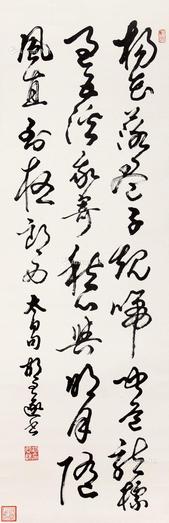 杨花落尽子规啼闻道龙标
过五溪我寄愁心与明月随
风直到夜郎西 太白句